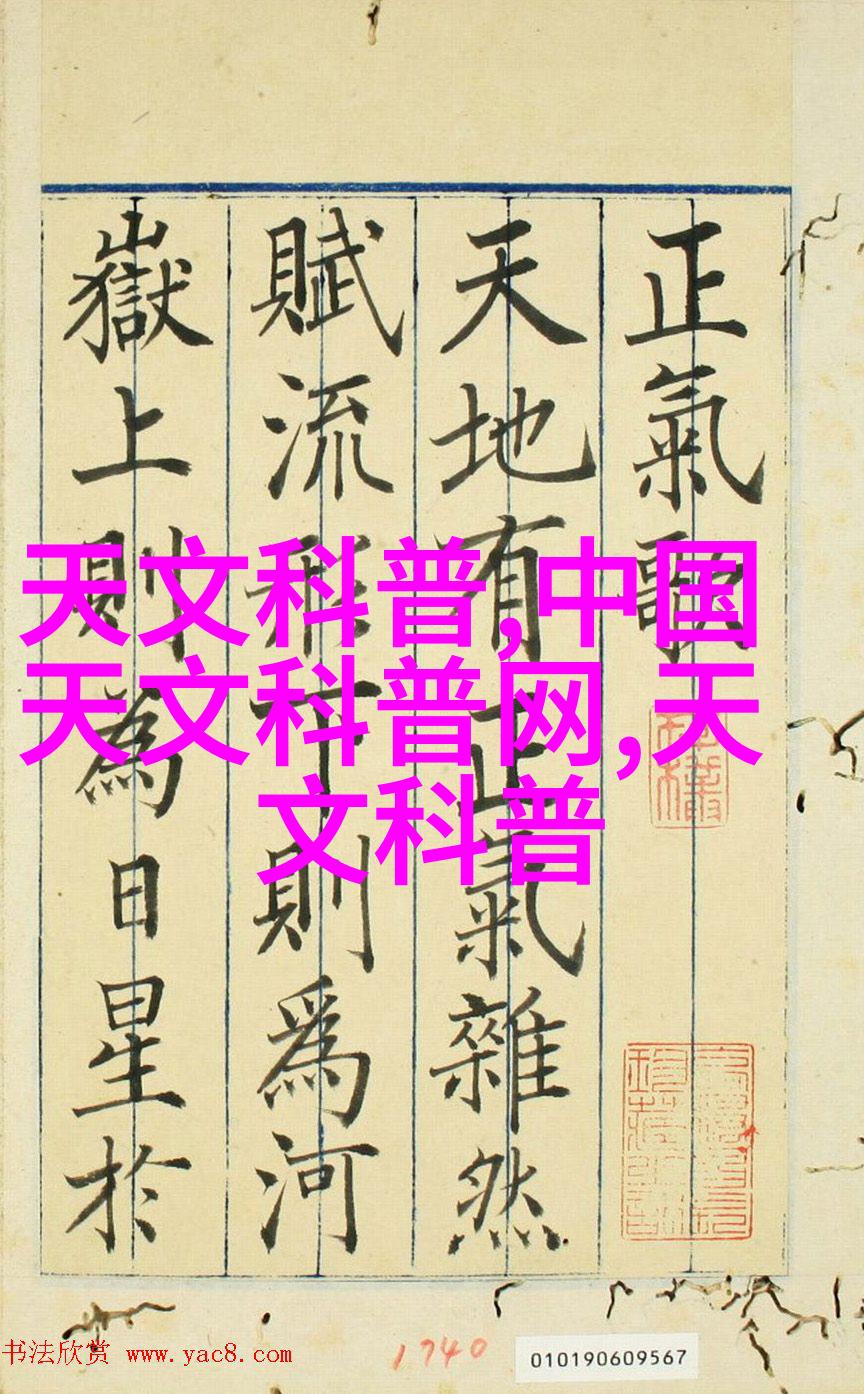 正氣歌
天地有正氣雜然
賦流形下則爲河
嶽上則為日星於
天文科普,中国
天文科普网,天
文科普
书法欣赏 www.yac8.com
1740
010190609567